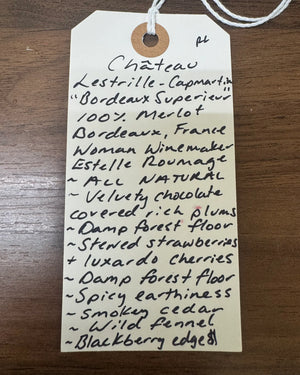 RL
Château
Lestrille-Capmartin
"Bordeaux Superieur"
100% Merlot
Bordeaux, France
Woman Winemaker
Estelle Roumage
~ ALL NATURAL
~ Velvety chocolate
covered rich plums
~ Damp forest floor
~ Stewed strawberries
+ luxardo cherries
~ Damp forest floor
~ Spicy earthiness
~ Smokey cedar
~ Wild fennel
~ Blackberry edges!